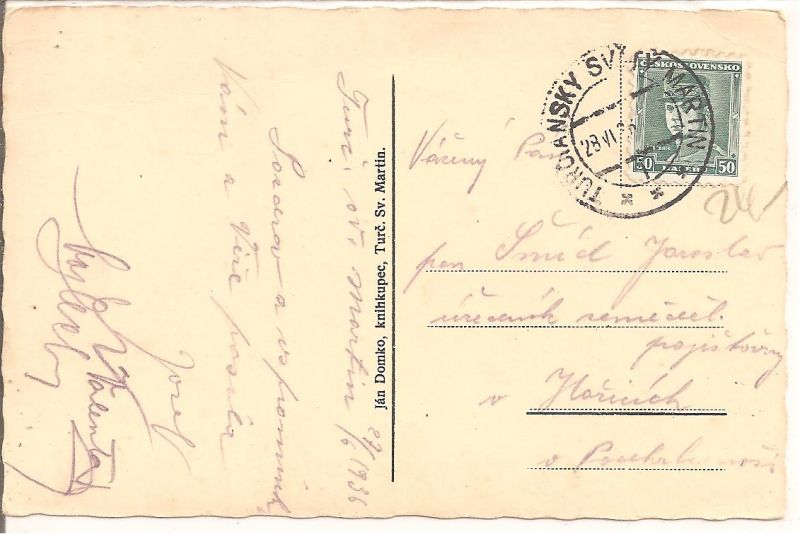 Turč. sv. Martin 27/6 1936
Pozdrav a vzpomínk
Vám a Vaše posílá
Josef
Valenta
Ján Domko, knihkupec, Turč. Sv. Martin.
ČESKOSLOVENSKO
50 HALÉŘŮ 50
TURČIANSKY SV. MARTIN
28.VI.
Vážený Pan
pan Šmíd Jaroslav
úředník zeměděl.
pojišťovny
v Hořicích
v Podkrkonoší